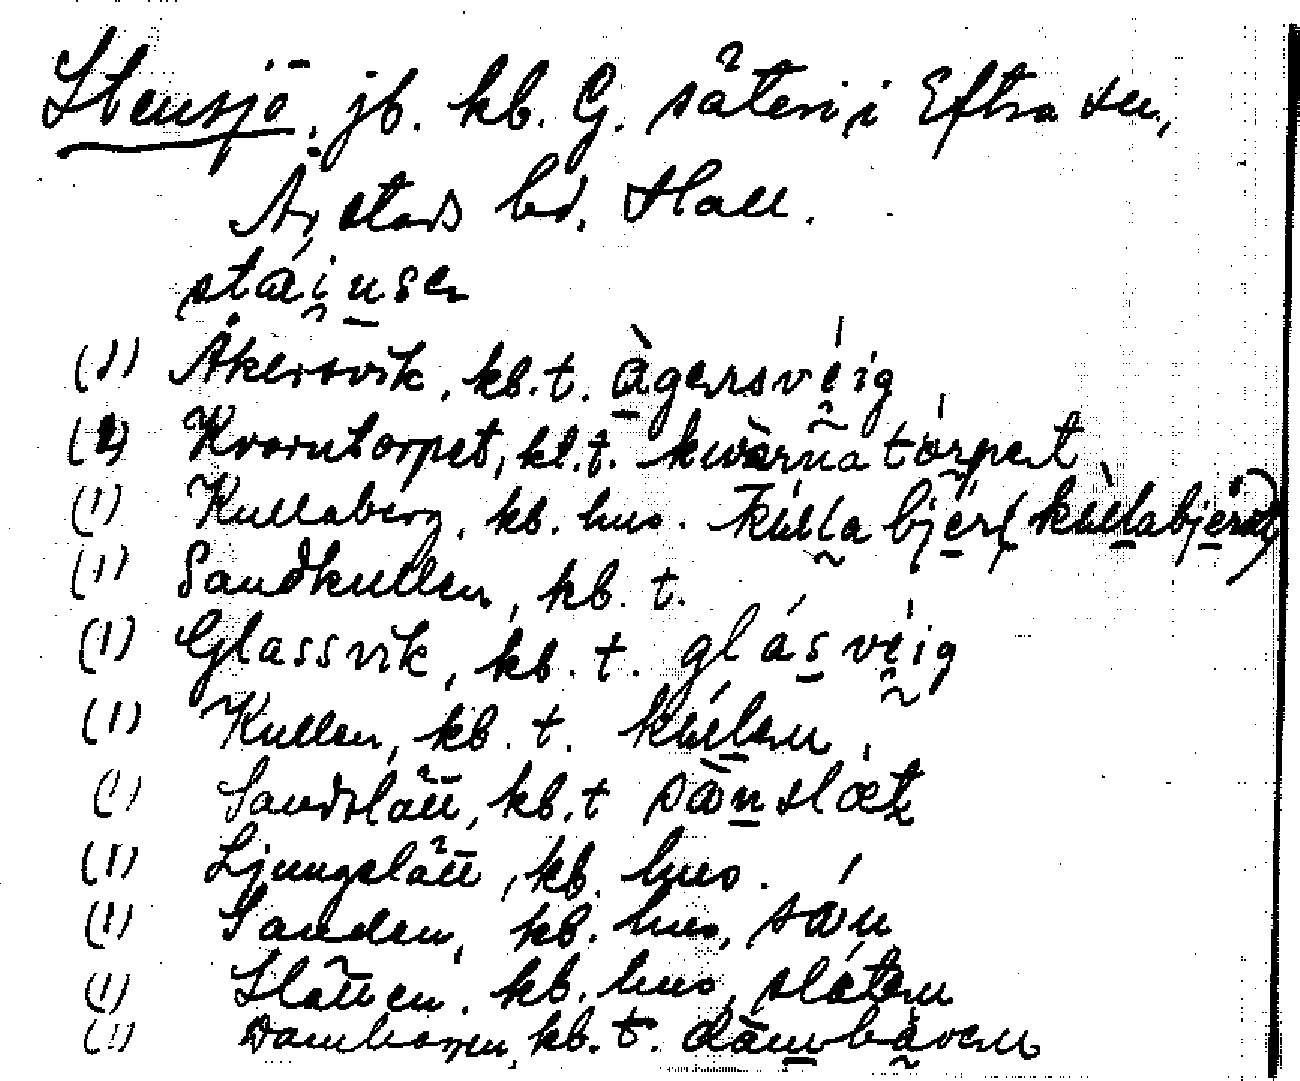 Stensjö, jb. kb. G. säteri i Eftra sn,
Årstads hd. Hall.
stäi̯usen
(1) Åkersvik, kb. t. àgersvéig
(2) Kvarntorpet, kl. t. kwärnatórpet
(1) Kullaberg, kb. hus. kúllabjér (kùllabjérət)
(1) Sandkullen, kb. t.
(1) Glassvik, kb. t. glásvéig
(1) Kullen, kb. t. kúlen
(1) Sandslätt, kb. t sànslæt
(1) Ljungslätt, kb. hus.
(1) Sanden, kb. hus, sán
(1) Slätten, kb. hus, sláten
(1) kb. t.